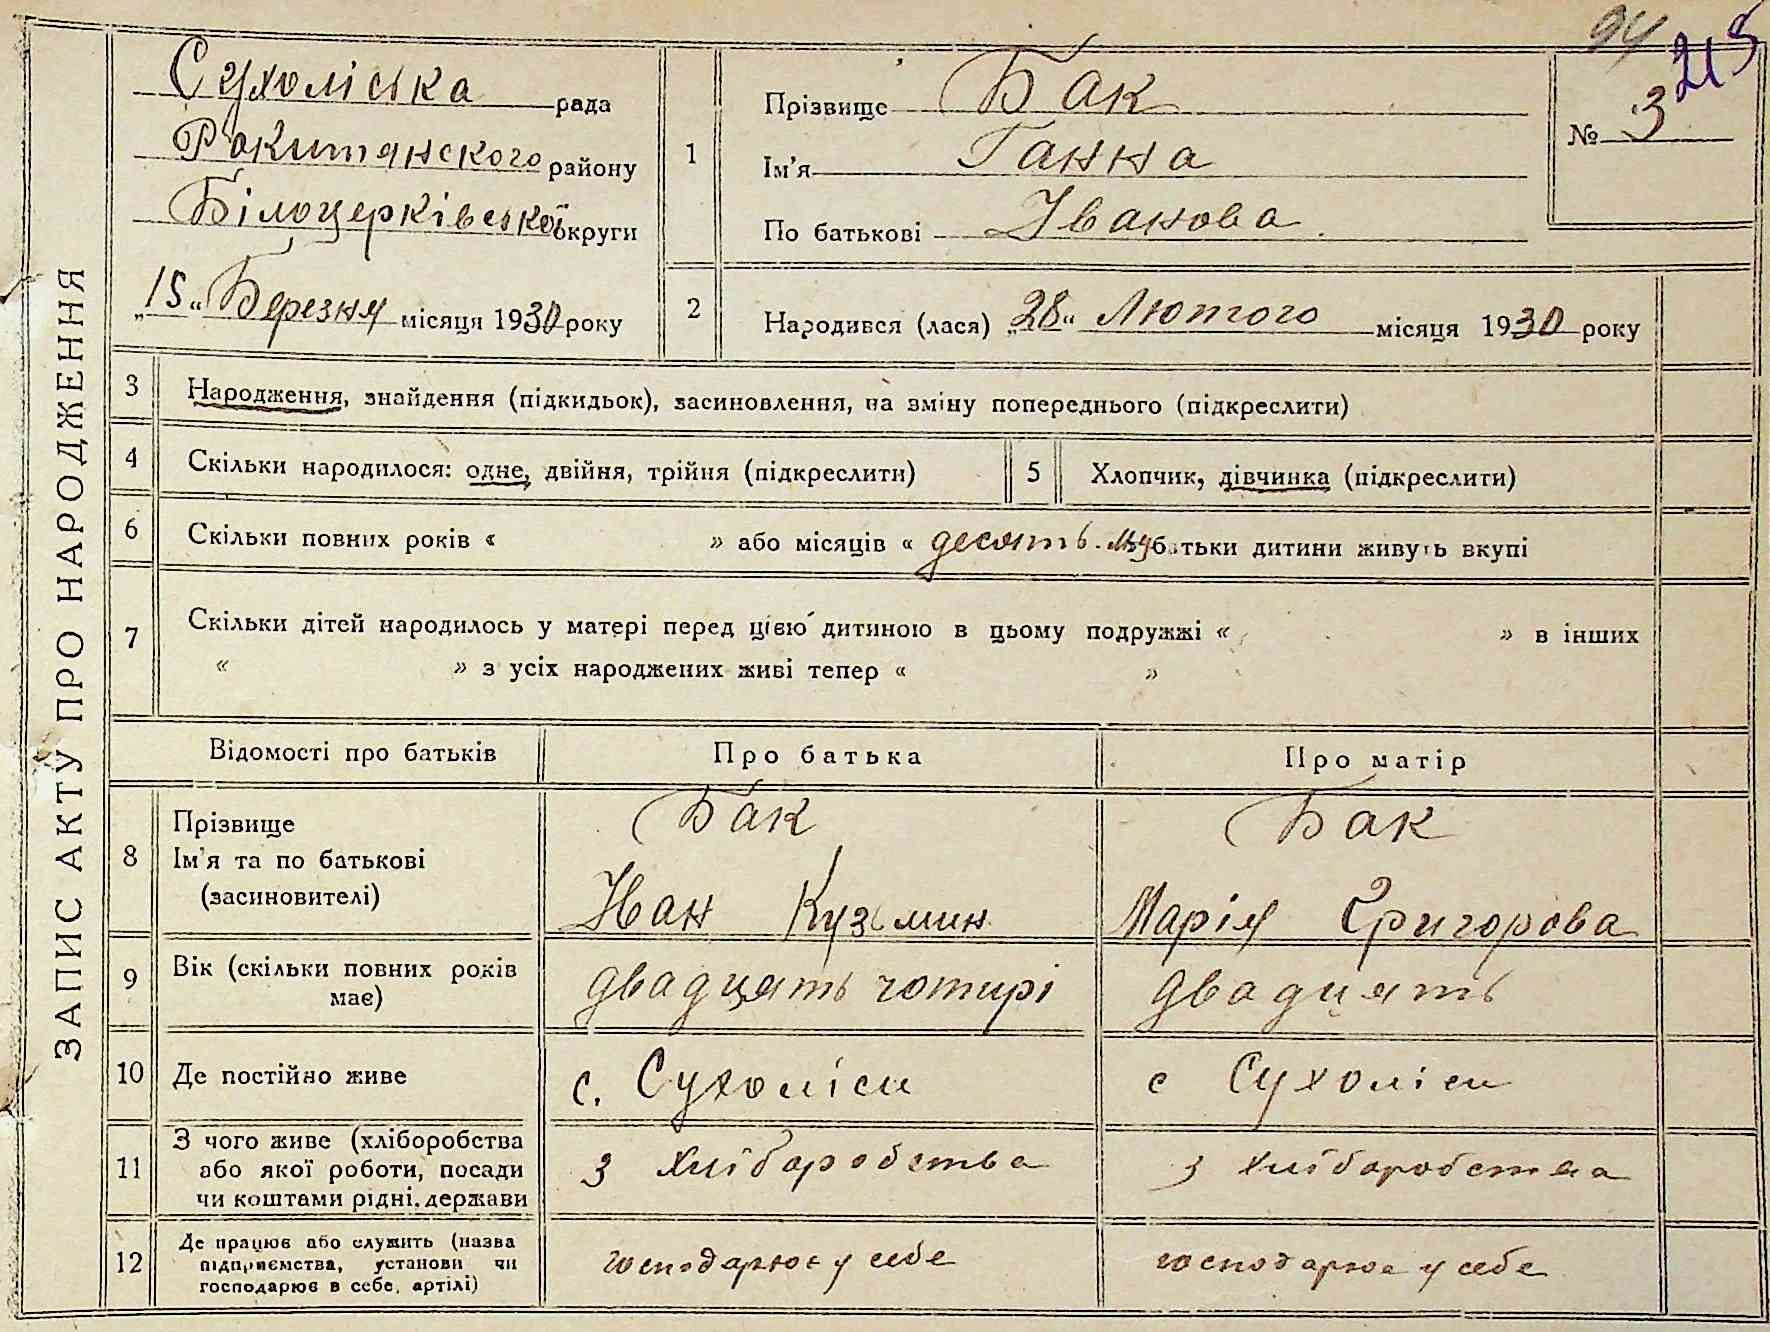 94
215
Сухоліська рада
Ракитянского району
Білоцерківської округи
„15“ Березня місяця 1930 року
1
Прізвище Бак
Ім'я Ганна
По батькові Іванова
№ 3
2
Народився (лася) „28“ Лютого місяця 1930 року
ЗАПИС АКТУ ПРО НАРОДЖЕННЯ
3 Народження, знайдення (підкидьок), засиновлення, на зміну попереднього (підкреслити)
4 Скільки народилося: одне, двійня, трійня (підкреслити)
5 Хлопчик, дівчинка (підкреслити)
6 Скільки повних років « » або місяців « десять батьки дитини живуть вкупі
7 Скільки дітей народилось у матері перед цією дитиною в цьому подружжі « » в інших
« » з усіх народжених живі тепер « »
Відомості про батьків Про батька Про матір
8
Прізвище
Ім'я та по батькові
(засиновителі)
Бак
Иван Кузьмин
Бак
Марія Григорова
9
Вік (скільки повних років
має)
двадцять чотирі
двадцять
10 Де постійно живе
с. Сухоліси
с Сухоліси
11
З чого живе (хліборобства
або якої роботи, посади
чи коштами рідні, держави
з хліборобства
з хліборобства
12
Де працює або служить (назва
підприємства, установи чи
господарює в себе, артілі)
господарює у себе
господарює у себе